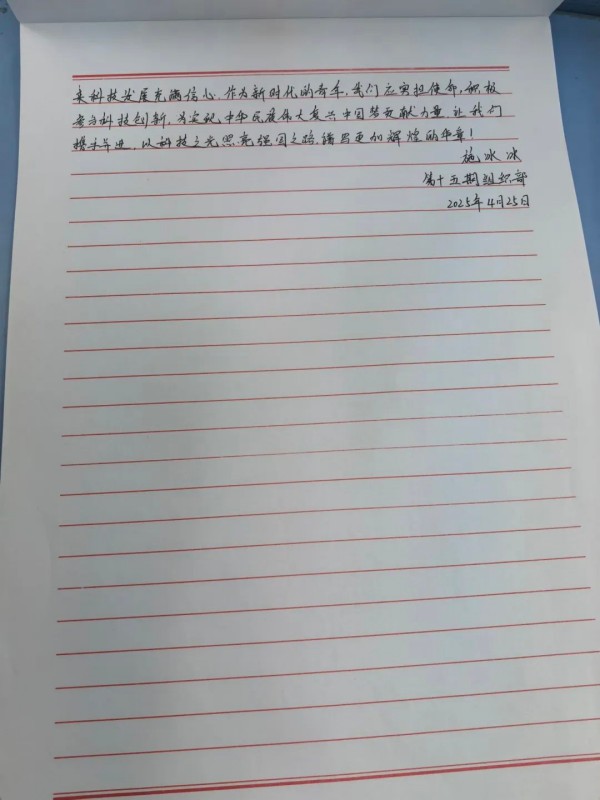 来科技发展充满信心.作为新时代的青年,我们应勇担使命,积极
参与科技创新,为实现中华民族伟大复兴中国梦贡献力量,让我们
携手前进,以科技之光照亮强国之路,谱写更加辉煌的华章!
施冰冰
第十五期组织部
2025年4月25日